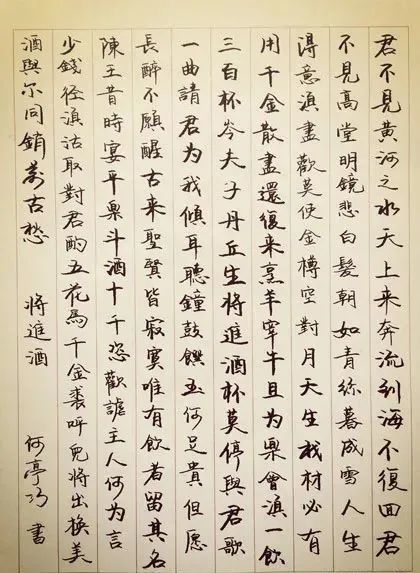 君不見黃河之水天上来奔流到海不復回君
不見高堂明鏡悲白髮朝如青絲暮成雪人生
得意湏盡歡莫使金樽空對月天生我材必有
用千金散盡還復来烹羊宰牛且为樂會湏一飲
三百杯岑夫子丹丘生将進酒杯莫停與君歌
一曲請君为我傾耳聽鐘鼓饌玉何足貴但愿
長醉不願醒古来聖賢皆寂寞唯有飲者留其名
陳王昔時宴平樂斗酒十千恣歡謔主人何为言
少錢径湏沽取對君酌五花馬千金裘呼兒将出換美
酒與尔同銷萬古愁 将進酒 何亭巧 書